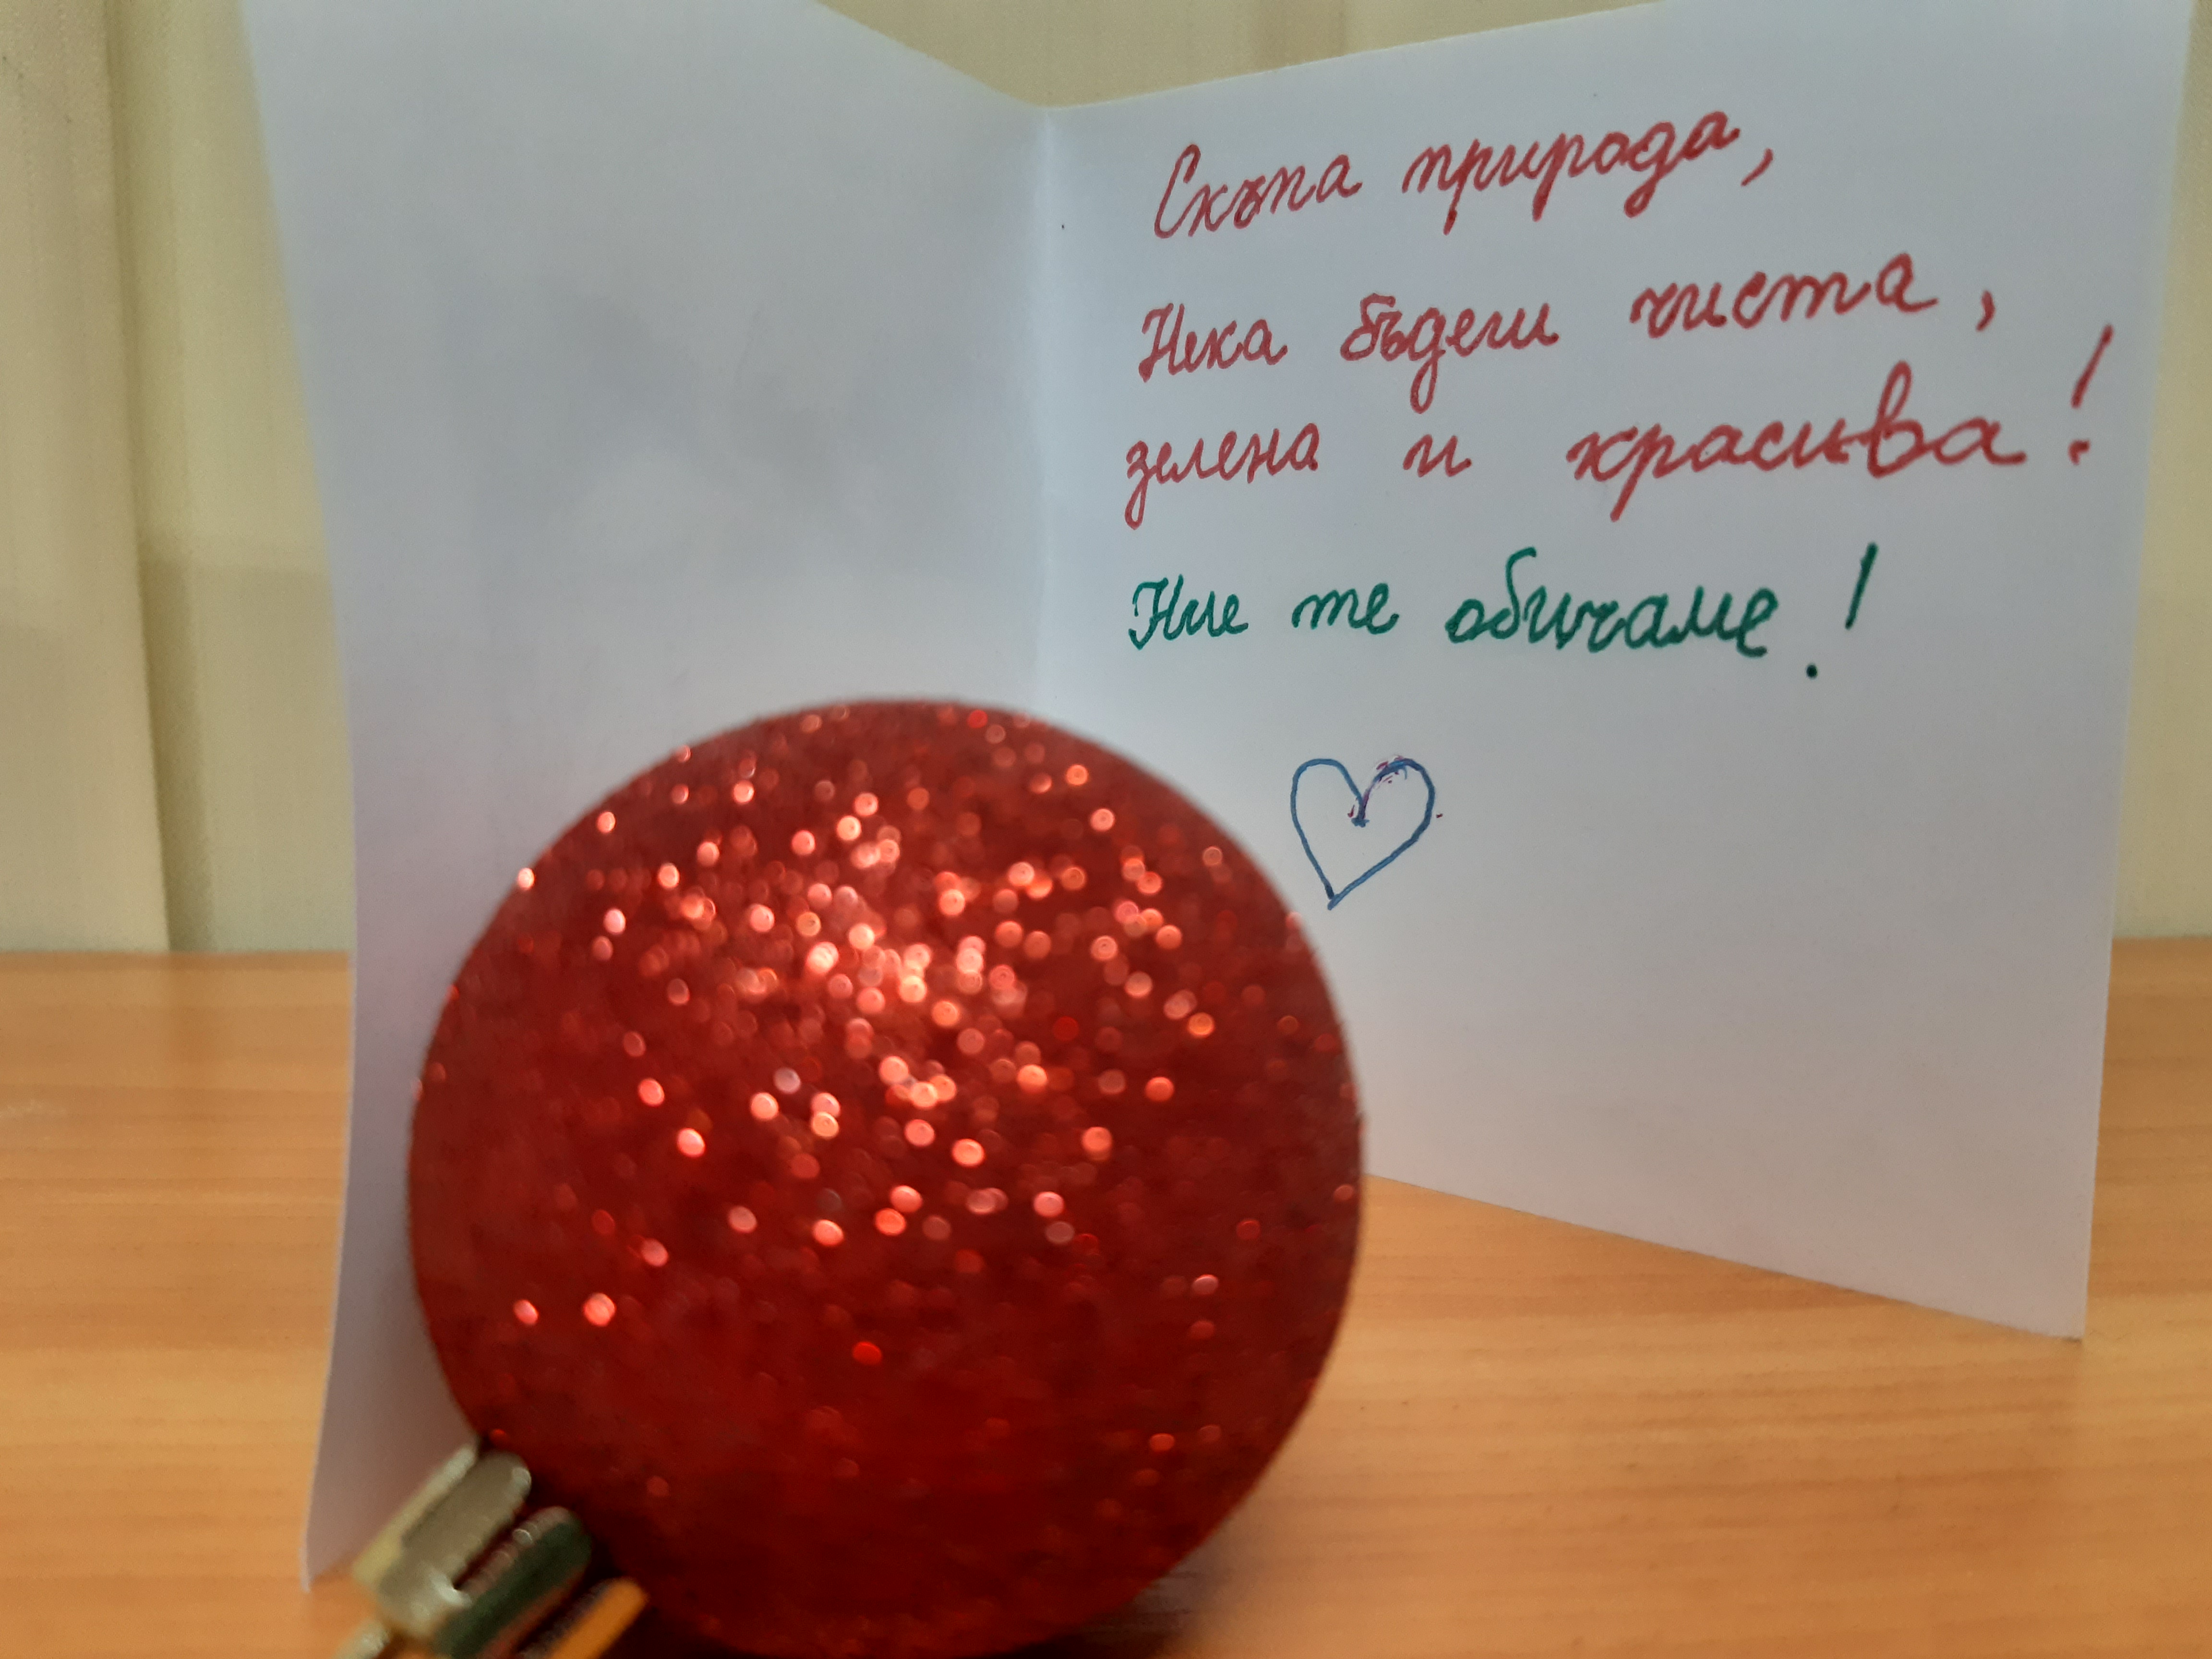 Скъпа природа,
Нека бъдеш чиста,
зелена и красива!
Ние те обичаме!